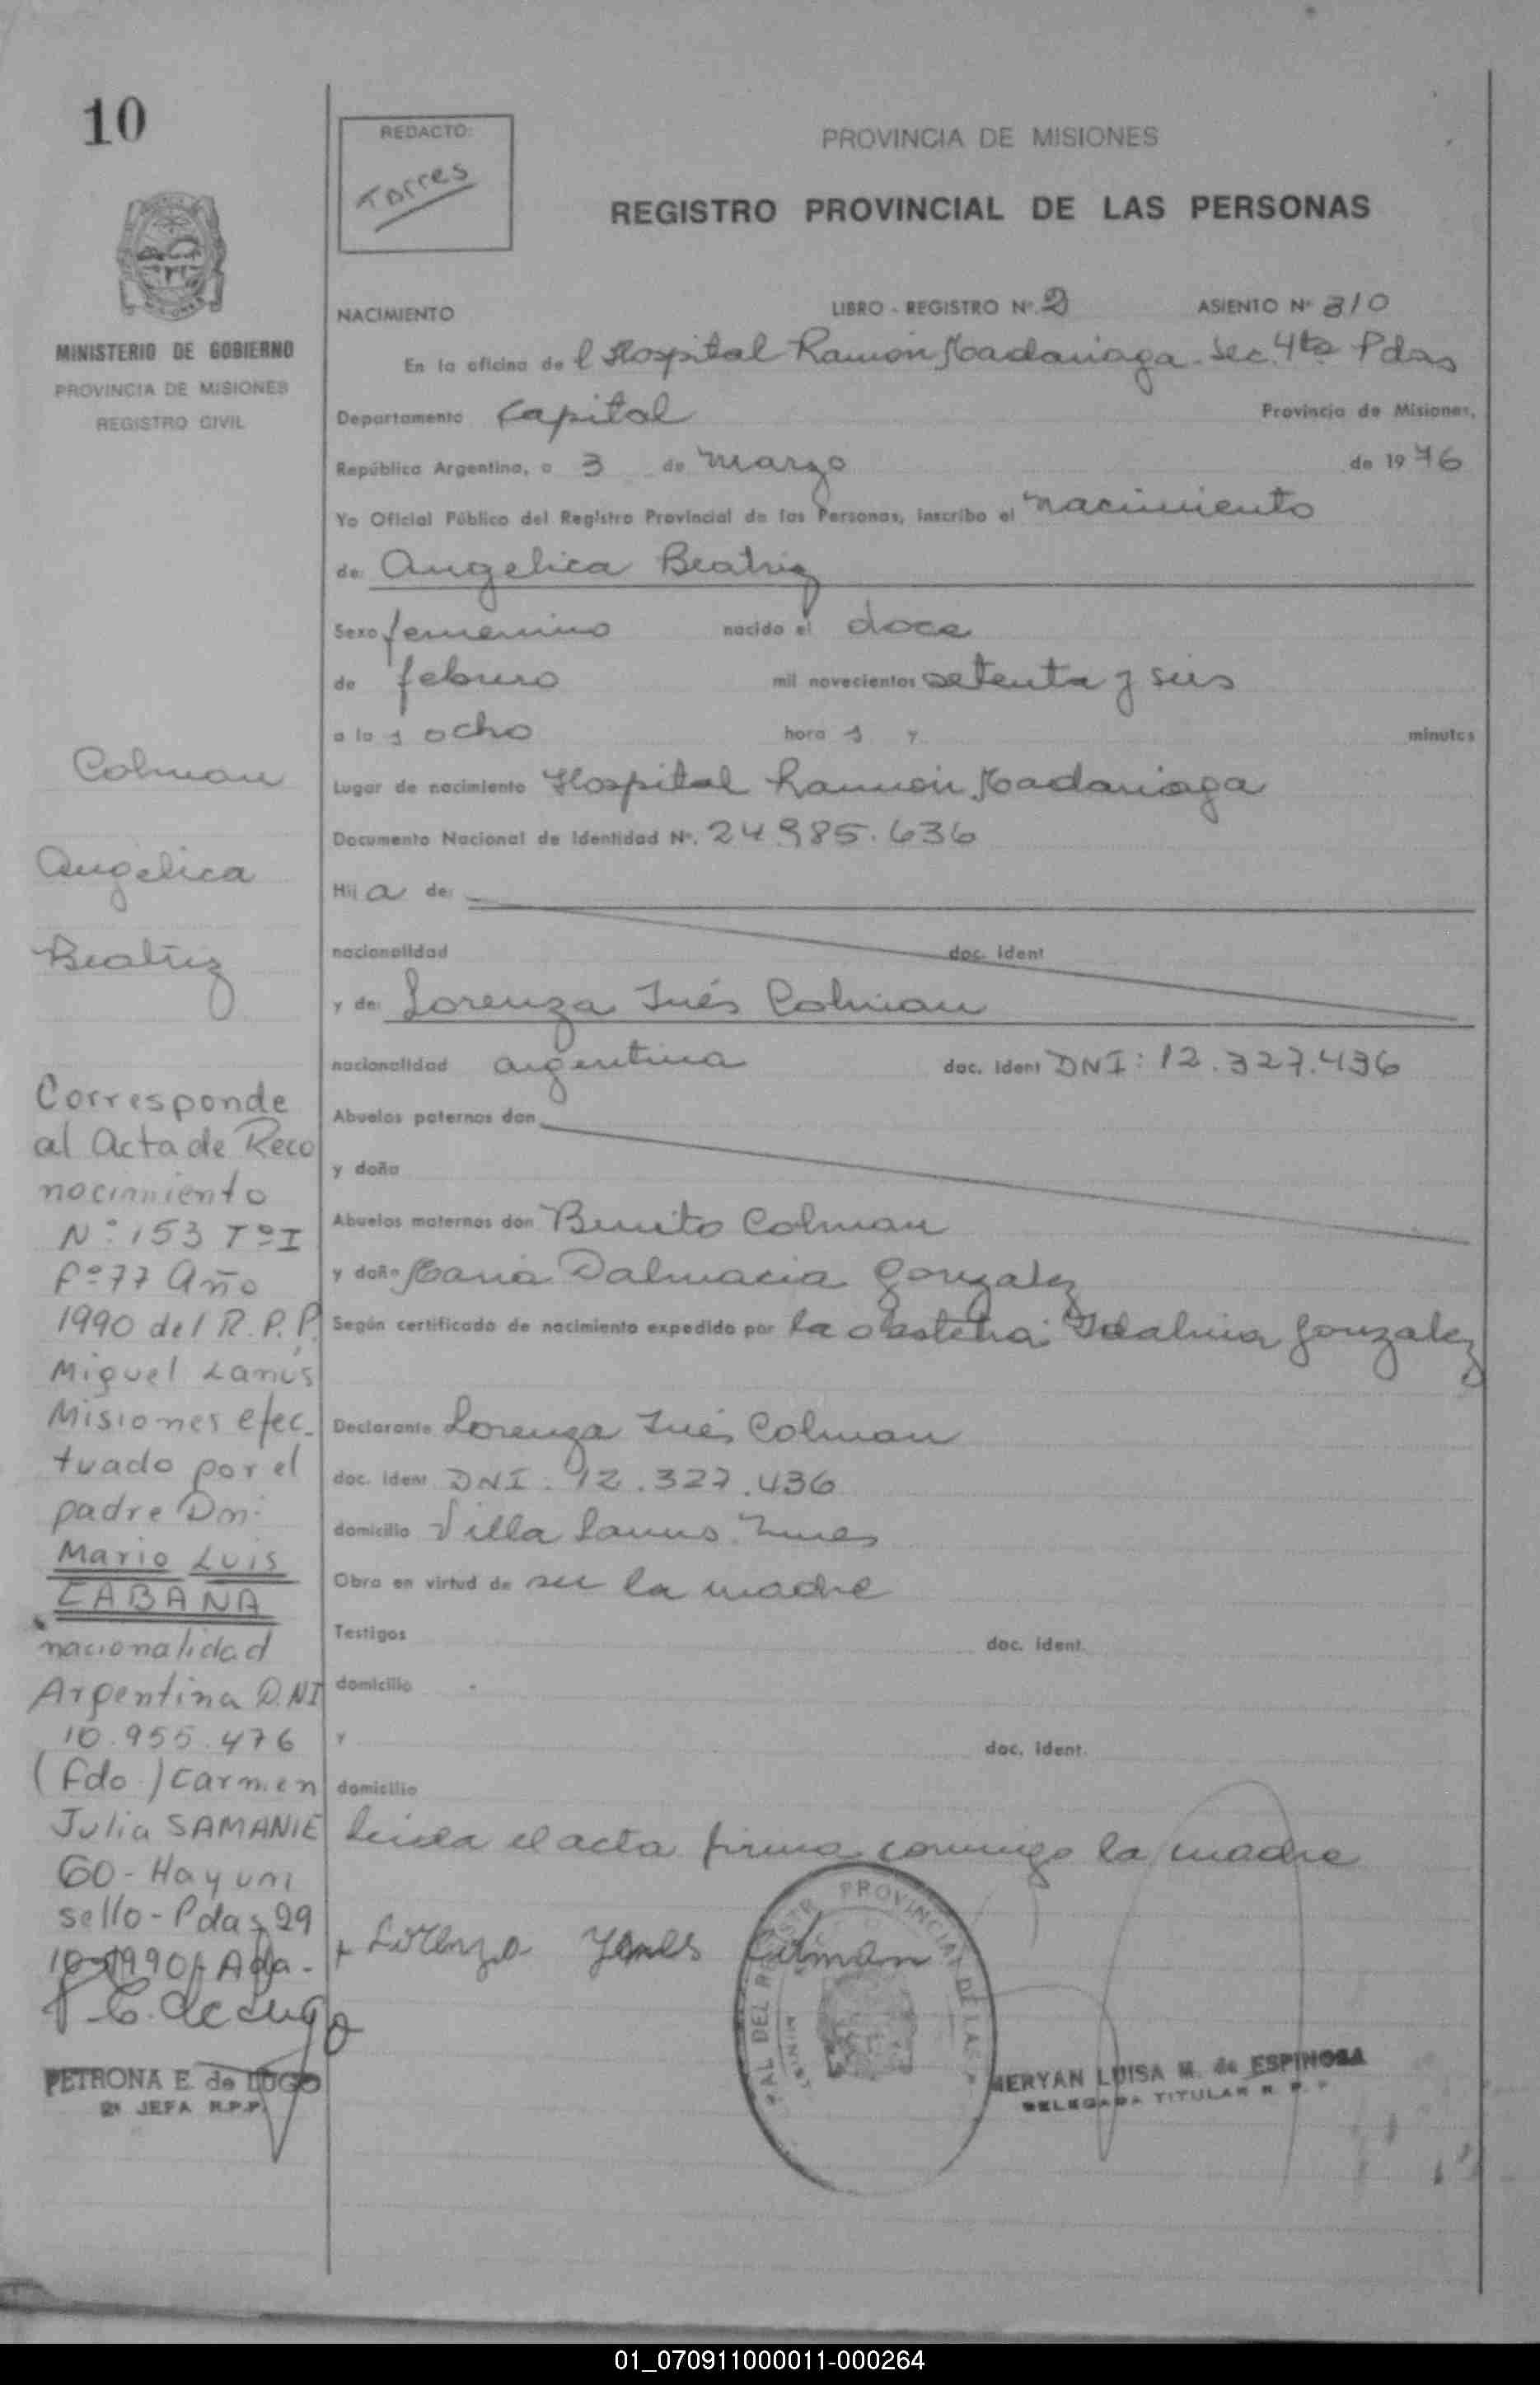 10
REDACTO:
Torres
PROVINCIA DE MISIONES
REGISTRO PROVINCIAL DE LAS PERSONAS
MINISTERIO DE GOBIERNO
PROVINCIA DE MISIONES
REGISTRO CIVIL
NACIMIENTO LIBRO - REGISTRO Nº 2 ASIENTO Nº 310
En la oficina de l Hospital Ramón Madariaga Sec. 4ta Pdas
Departamento Capital Provincia de Misiones,
República Argentina, a 3 de Marzo de 1976
Yo Oficial Público del Registro Provincial de las Personas, inscribo el nacimiento
de: Angelica Beatriz
Sexo femenino nacido el doce
de febrero mil novecientos setenta y seis
a las ocho hora s y minutos
Lugar de nacimiento Hospital Ramón Madariaga
Documento Nacional de Identidad Nº. 24.985.636
Hija de:
nacionalidad doc. ident
y de: Lorenza Inés Colman
nacionalidad argentina doc. ident DNI: 12.327.436
Abuelos paternos don
y doña
Abuelos maternos don Benito Colman
y doña Maria Dalmacia Gonzalez
Según certificado de nacimiento expedido por la obstetra Idalina Gonzalez
Declarante Lorenza Inés Colman
doc. ident DNI: 12.327.436
domicilio Villa Lanus Mnes
Obra en virtud de ser la madre
Testigos doc. ident.
domicilio
y doc. ident.
domicilio
Leida el acta firma conmigo la madre
Lorenza Ynes Colman
PROVINCIAL DE LAS
MERYAN LUISA M. de ESPINOSA
DELEGADA TITULAR R. P. P.
Colman
Angelica
Beatriz
Corresponde
al Acta de Reco
nocimiento
Nº: 153 Tº I
Fº 77 Año
1990 del R.P.P.
Miguel Lanús
Misiones efec-
tuado por el
padre Dn:
Mario Luis
CABAÑA
nacionalidad
Argentina D.NI
10.955.476
(Fdo.) Carmen
Julia SAMANIE
GO - Hay un
sello - Pdas 29
10-1990
PETRONA E. de LUGO
2ª JEFA R.P.P.
01_070911000011-000264